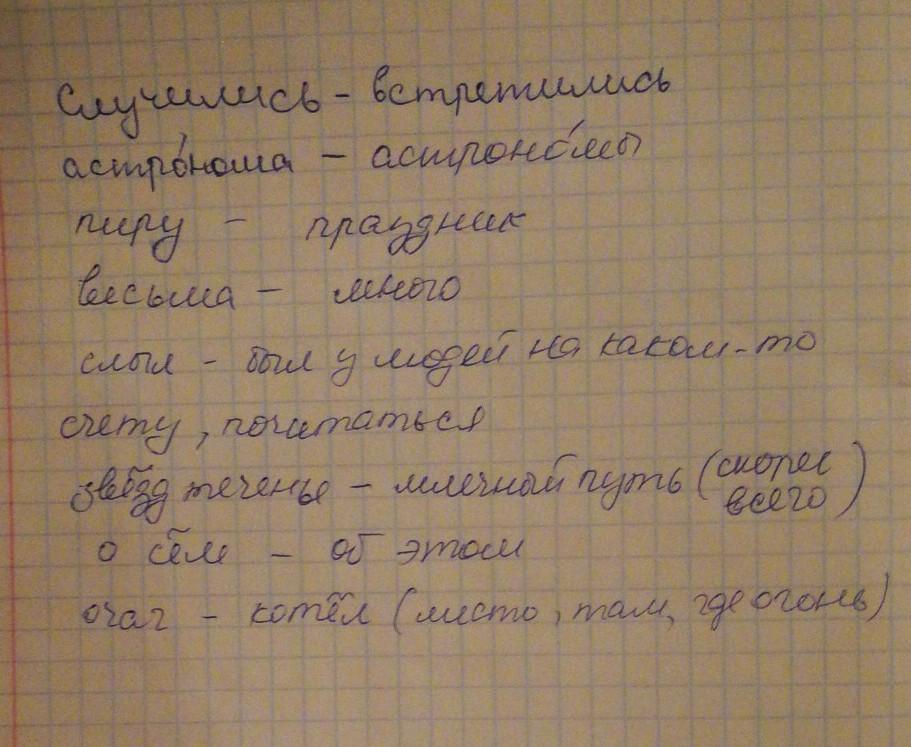 Случились - встретились
астро́нома - астроно́мы
пиру - праздник
весьма - много
слыл - был у людей на каком-то
счету, почитаться
звёзд теченье - млечный путь (скорее всего)
о сём - об этом
очаг - котёл (место, там, где огонь)